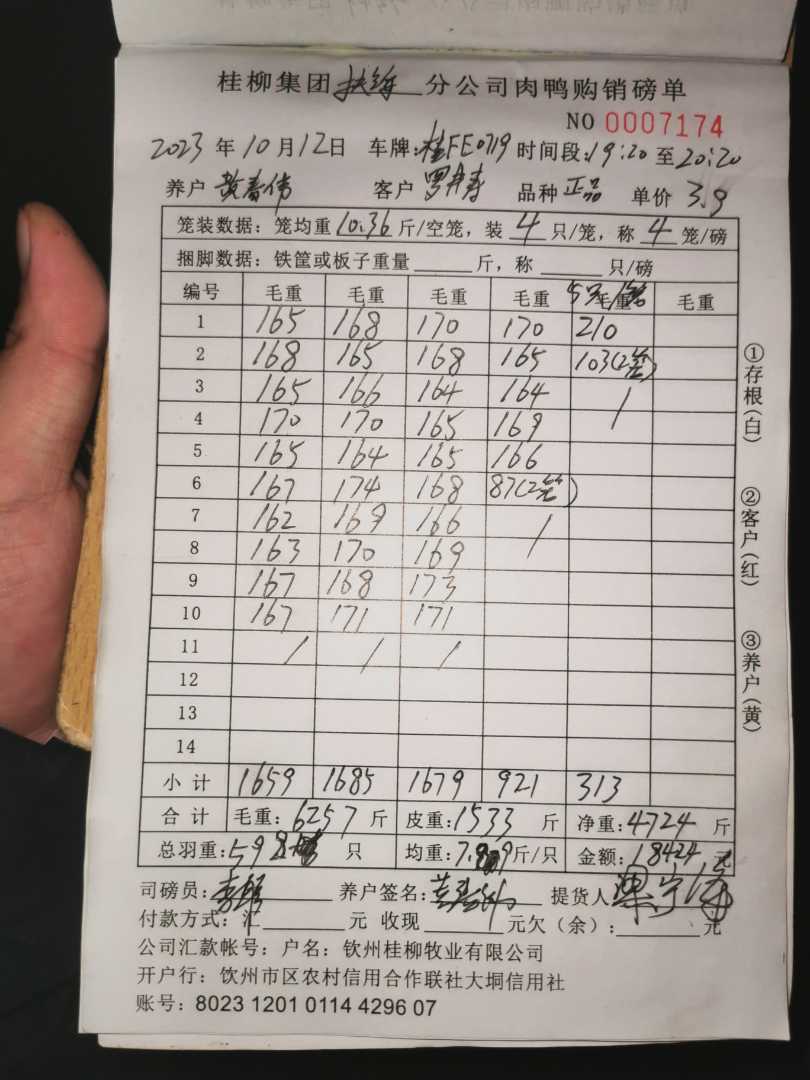 桂柳集团扶绥分公司肉鸭购销磅单
NO 0007174
2023年10月12日 车牌:桂FE0719 时间段:19:20至20:20
养户 黄春伟 客户 品种 正品 单价 3.9
笼装数据：笼均重10.36斤/空笼，装4只/笼，称4笼/磅
捆脚数据：铁筐或板子重量 斤，称 只/磅
编号 毛重 毛重 毛重 毛重 5只/笼 毛重 毛重
1 165 168 170 170 210
2 168 165 168 165 103(2笼)
3 165 166 164 164 /
4 170 170 165 169
5 165 164 165 166
6 167 174 168 87(2笼)
7 162 169 166 /
8 163 170 169
9 167 168 173
10 167 171 171
11 / / /
12
13
14
小计 1659 1685 1679 921 313
合计 毛重:6257斤 皮重:1533斤 净重:4724斤
总羽重:598 只 均重:7.9斤/只 金额:18424元
司磅员: 养户签名: 提货人
付款方式：汇 元 收现 元欠（余）: 元
公司汇款帐号：户名：钦州桂柳牧业有限公司
开户行：饮州市区农村信用合作联社大垌信用社
账号：8023 1201 0114 4296 07
①存根(白)
②客户(红)
③养户(黄)